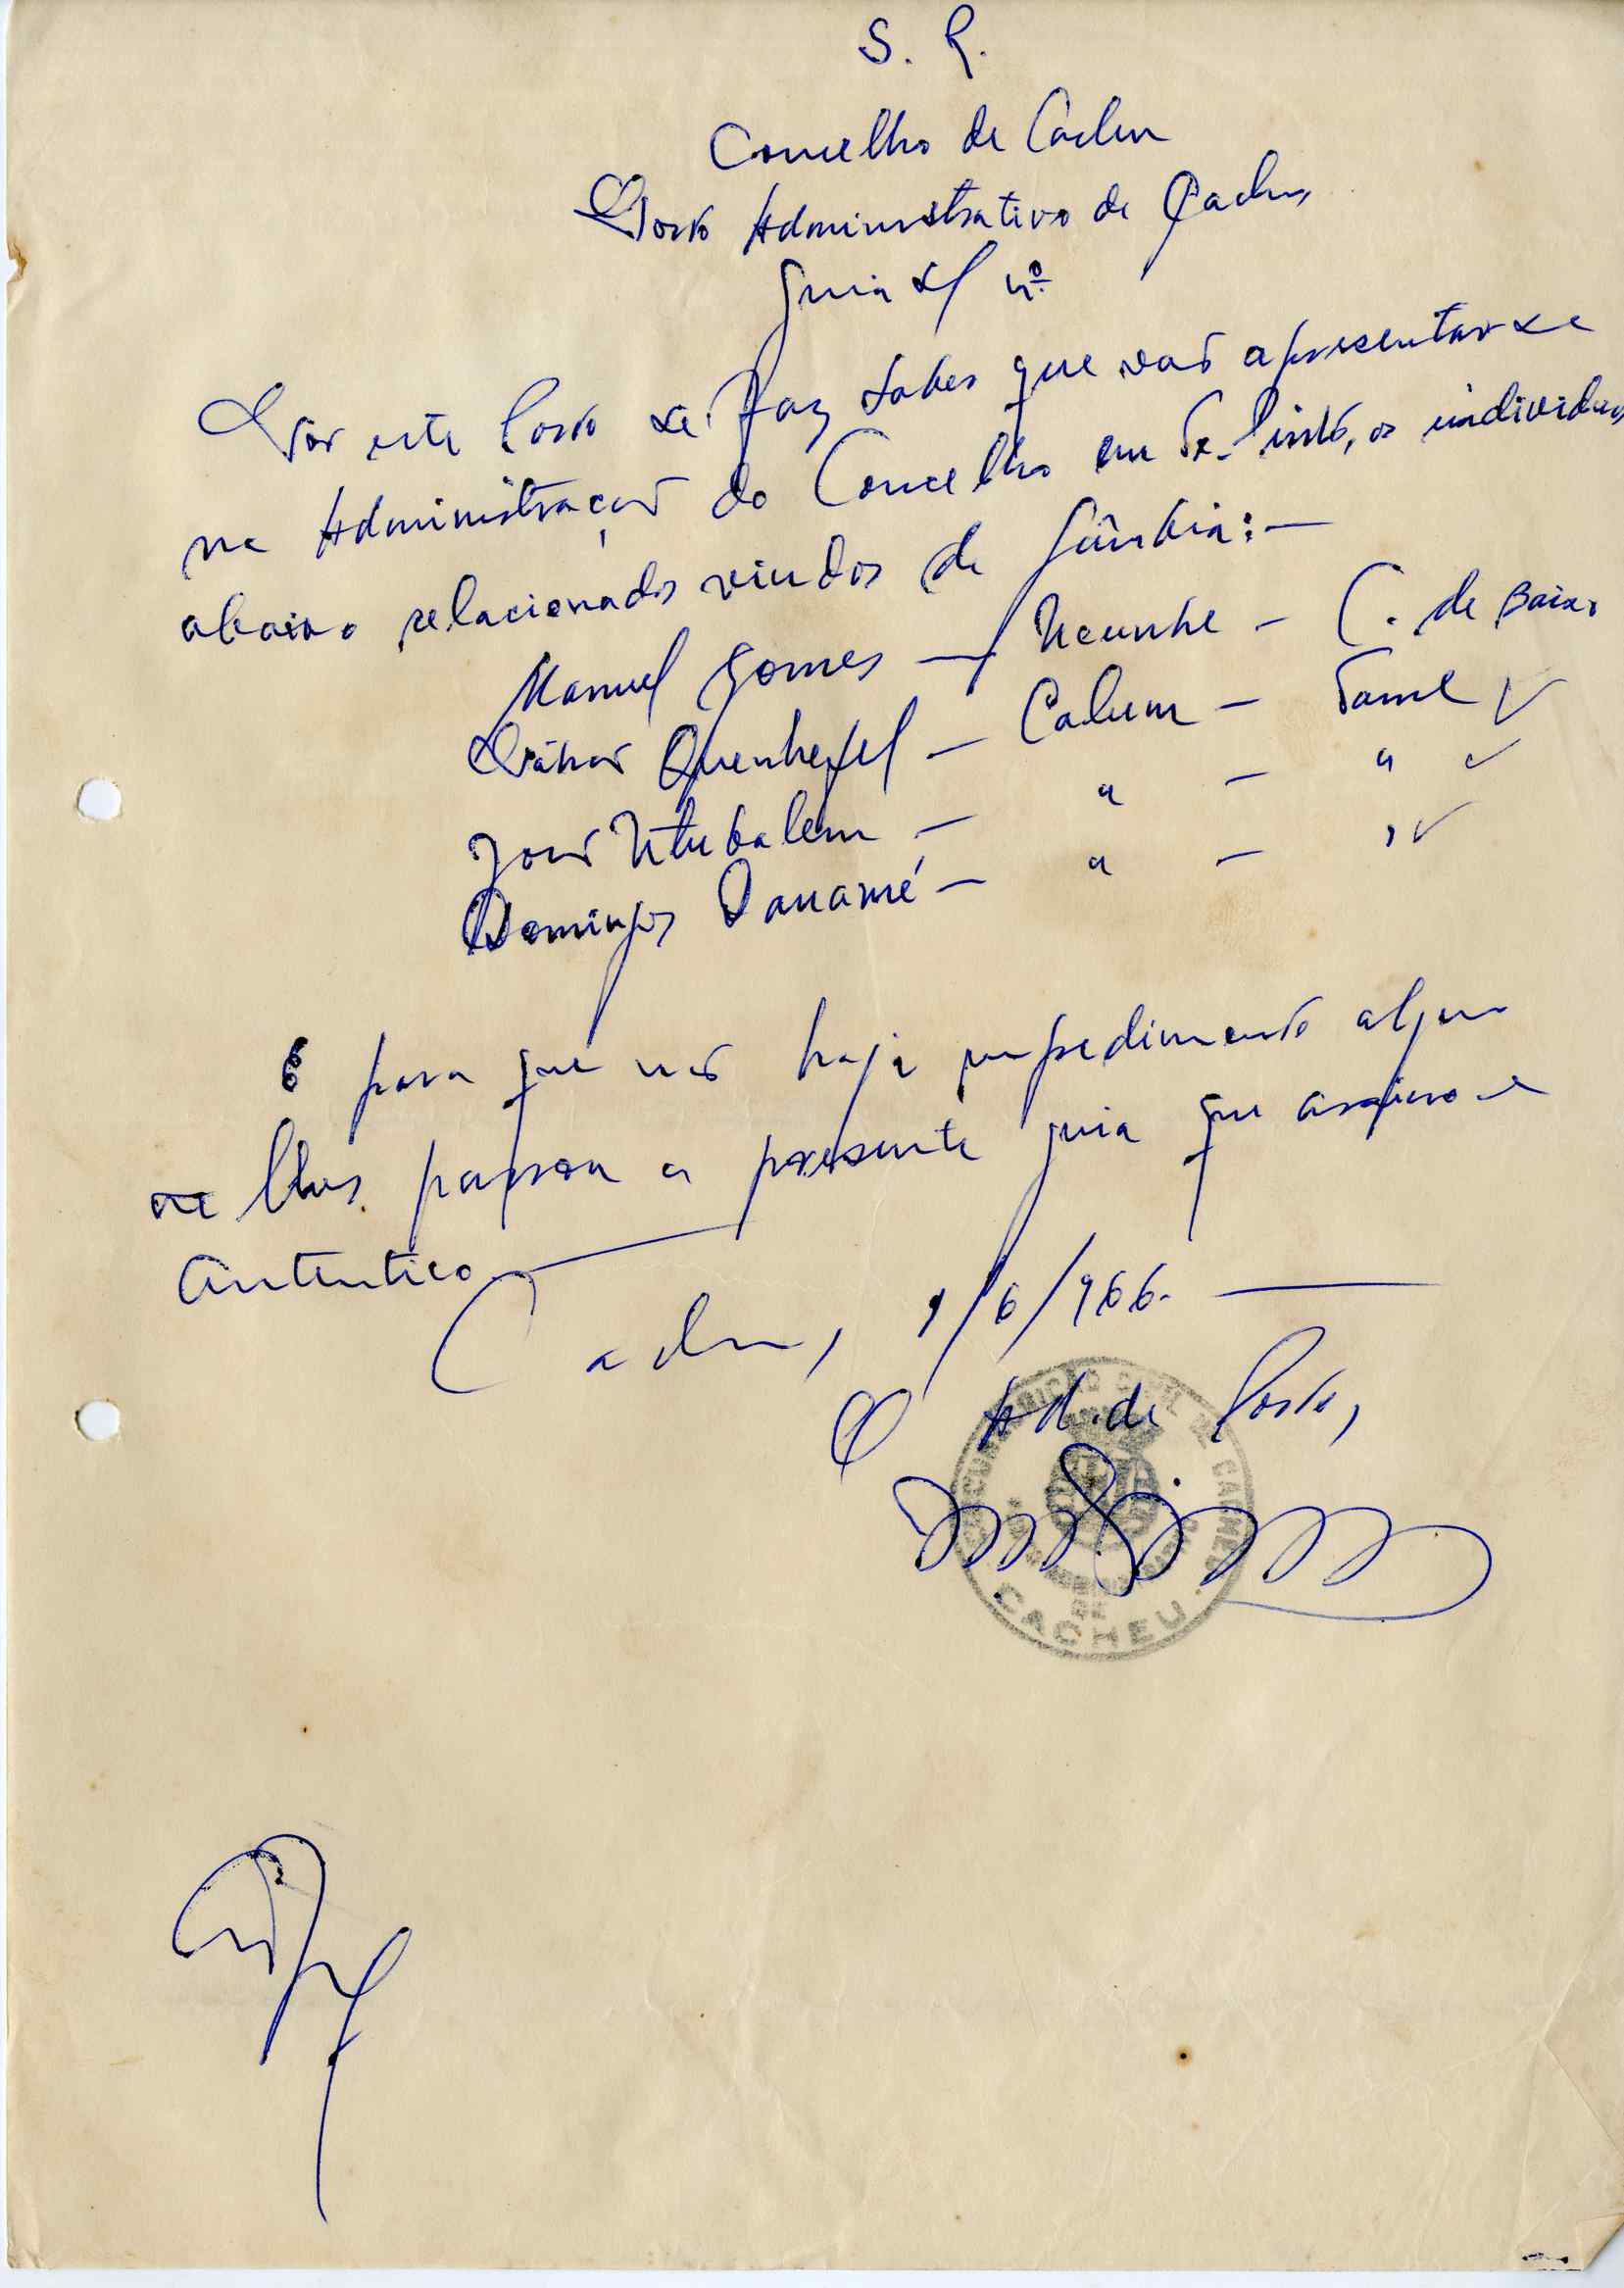 S. R.
Concelho de Cacheu
Posto Administrativo de Cacheu
Guia s/ nº
Por este Posto se faz saber que vão apresentar-se
na Administração do Concelho em T. Pinto, os individuos
abaixo relacionados vindos de Gâmbia:—
Manuel Gomes — — C. de Baixo
Quenhefel — Calum — Tame
José Ntubalem — " — "
Domingos Panamé — " — "
E para que não haja impedimento algum
se lhes passou a presente guia que assino e
autentico
Cacheu, 9/6/966.
O Ad. de Posto,
CIRCUNSCRIÇÃO CIVIL DE CACHEU
DE
CACHEU